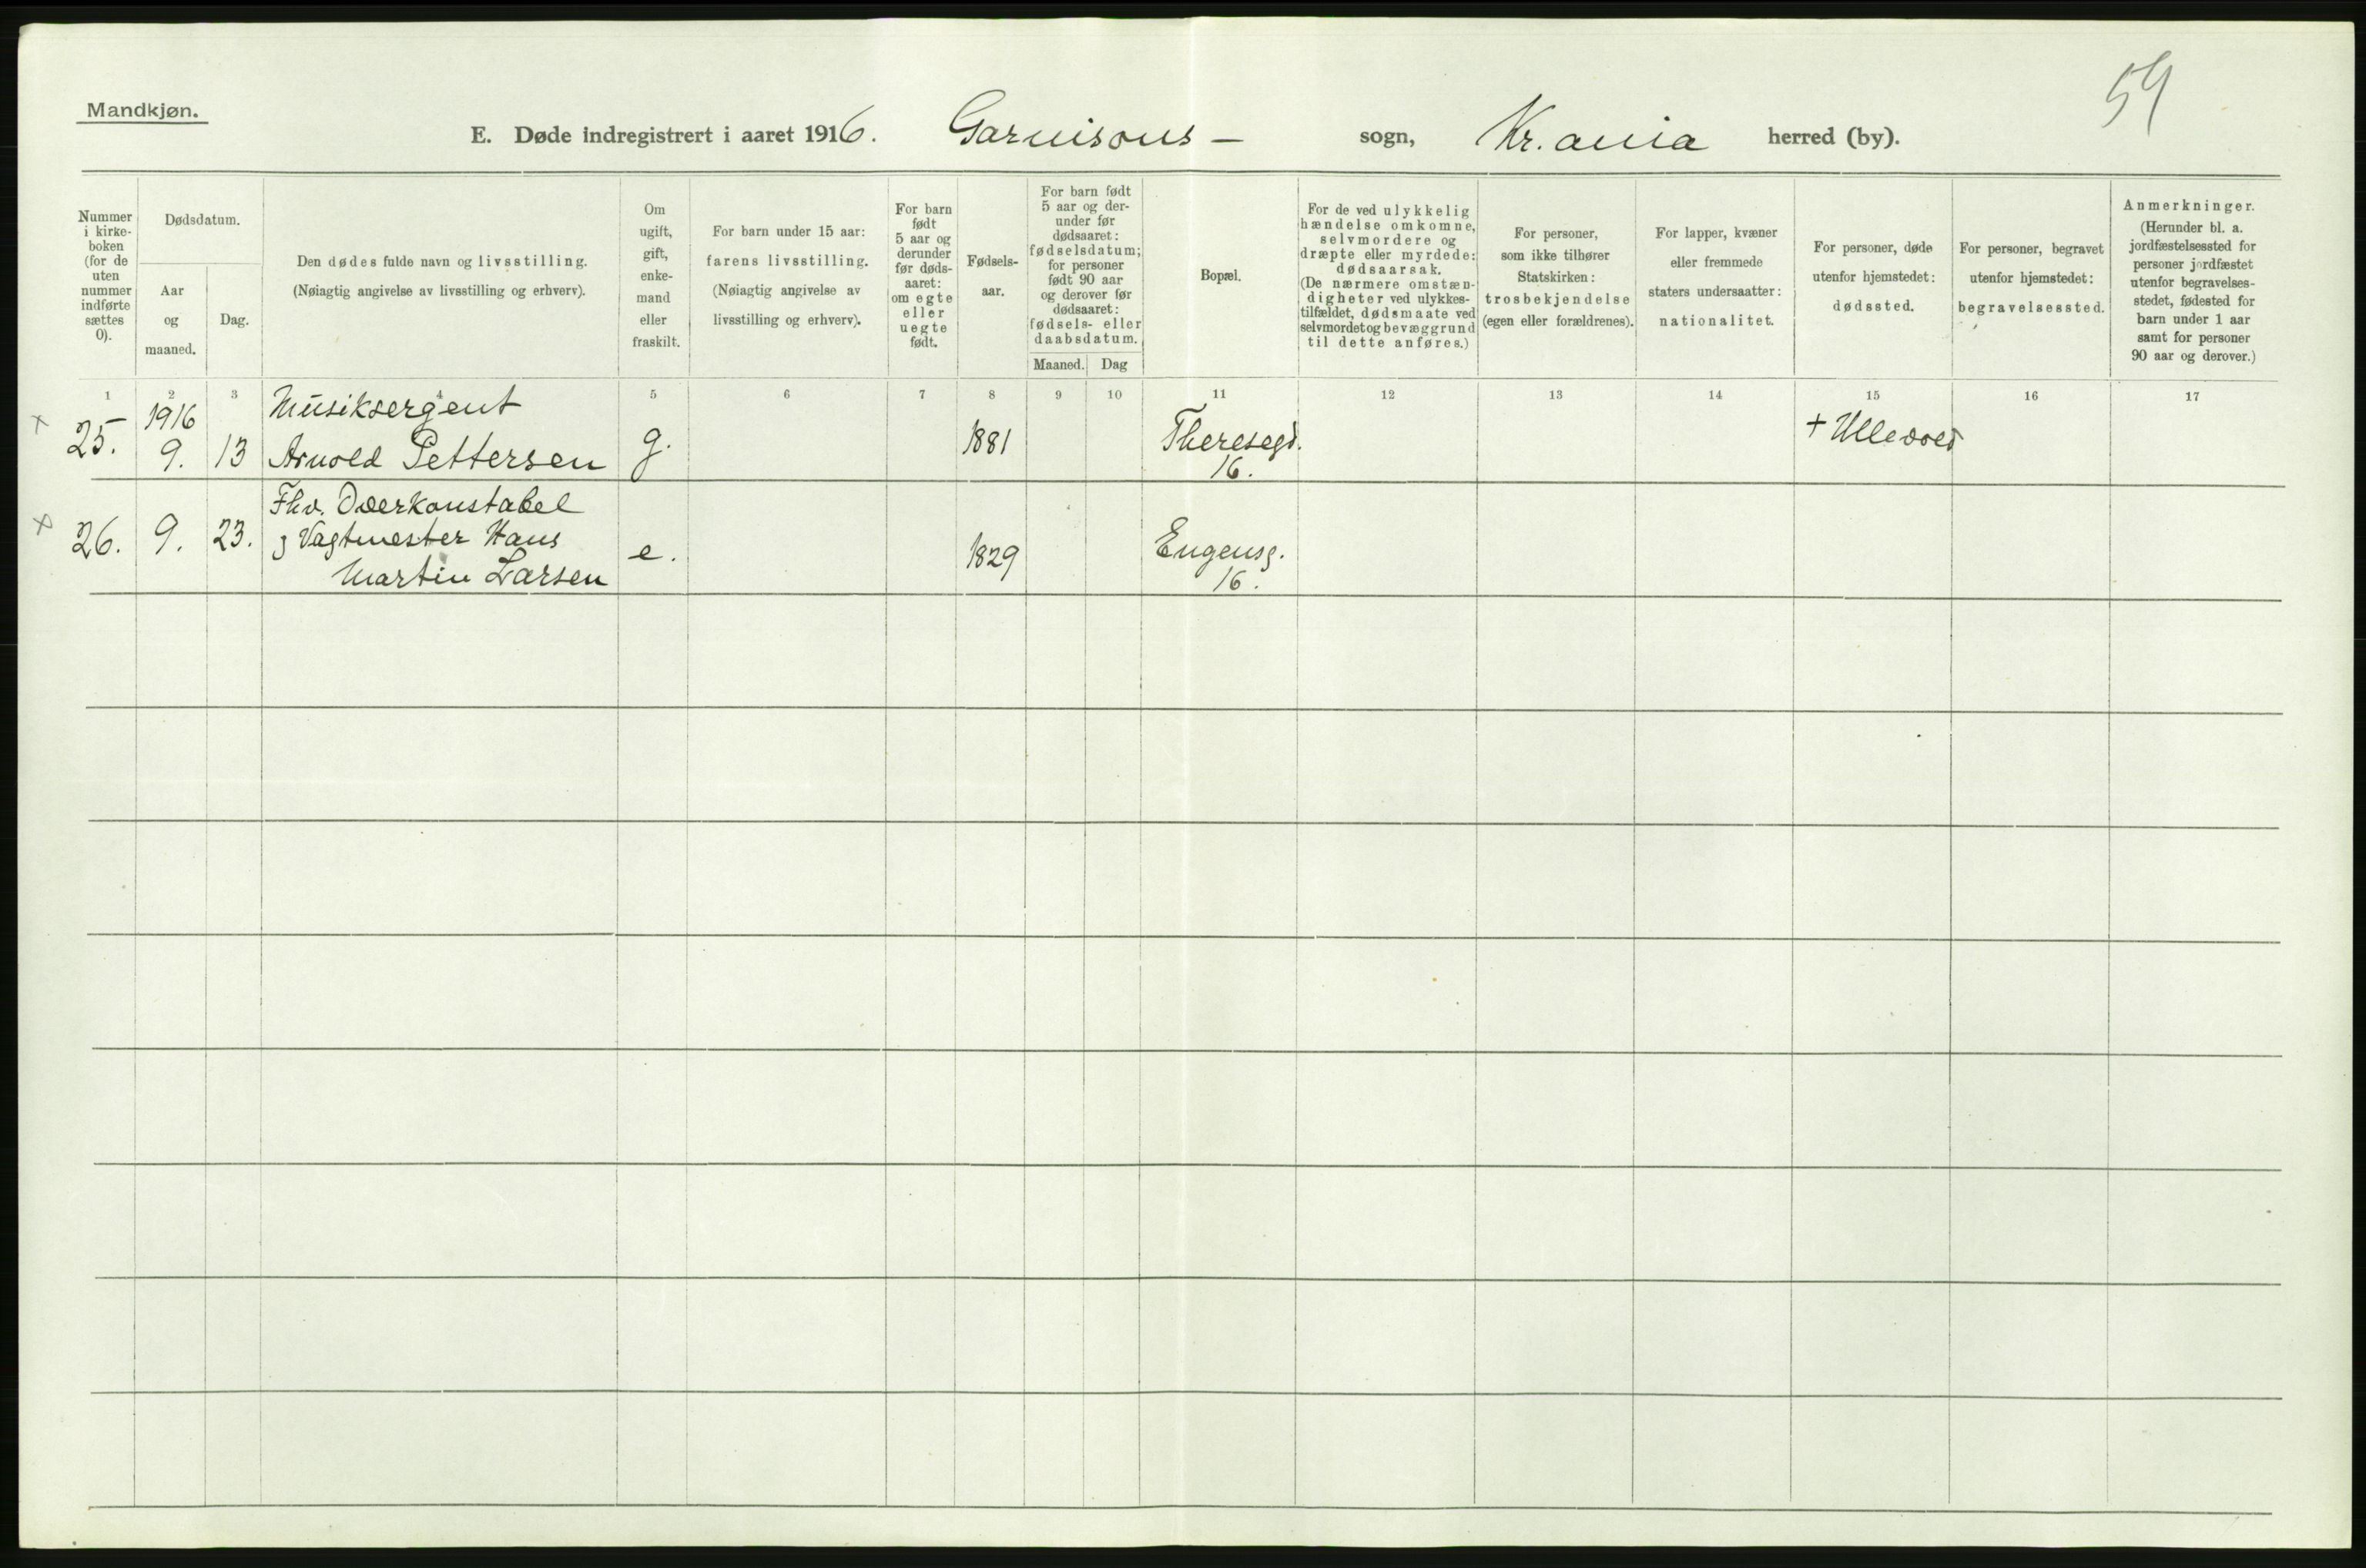 Mandkjøn.
59
E. Døde indregistrert i aaret 1916. Garnisons- sogn, Kr.ania herred (by).
Nummer
i kirke-
boken
(for de
uten
nummer
indførte
sættes
0).
Dødsdatum.
Aar
og
maaned.
Dag.
Den dødes fulde navn og livsstilling.
(Nøiagtig angivelse av livsstilling og erhverv).
Om
ugift,
gift,
enke-
mand
eller
fraskilt.
For barn under 15 aar:
farens livsstilling.
(Nøiagtig angivelse av
livsstilling og erhverv).
For barn
født
5 aar og
derunder
før døds-
aaret:
om egte
eller
uegte
født.
Fødsels-
aar.
For barn født
5 aar og der-
under før
dødsaaret:
fødselsdatum;
for personer
født 90 aar
og derover før
dødsaaret:
fødsels- eller
daabsdatum.
Maaned. Dag
Bopæl.
For de ved ulykkelig
hændelse omkomne,
selvmordere og
dræpte eller myrdede:
dødsaarsak.
(De nærmere omstæn-
digheter ved ulykkes-
tilfældet, dødsmaate ved
selvmordet og bevæggrund
til dette anføres.)
For personer,
som ikke tilhører
Statskirken:
trosbekjendelse
(egen eller forældrenes).
For lapper, kvæner
eller fremmede
staters undersaatter:
nationalitet.
For personer, døde
utenfor hjemstedet:
dødssted.
For personer, begravet
utenfor hjemstedet:
begravelsessted.
Anmerkninger.
(Herunder bl. a.
jordfæstelsessted for
personer jordfæstet
utenfor begravelses-
stedet, fødested for
barn under 1 aar
samt for personer
90 aar og derover.)
1 2 3 4 5 6 7 8 9 10 11 12 13 14 15 16 17
x 25. 1916
9. 13 Musiksergent
Arnold Pettersen g. 1881 Theresegd.
16. + Ullevold
x 26. 9. 23. Fhv. Overkonstabel
og Vagtmester Hans
Martin Larsen e. 1829 Eugensg.
16.